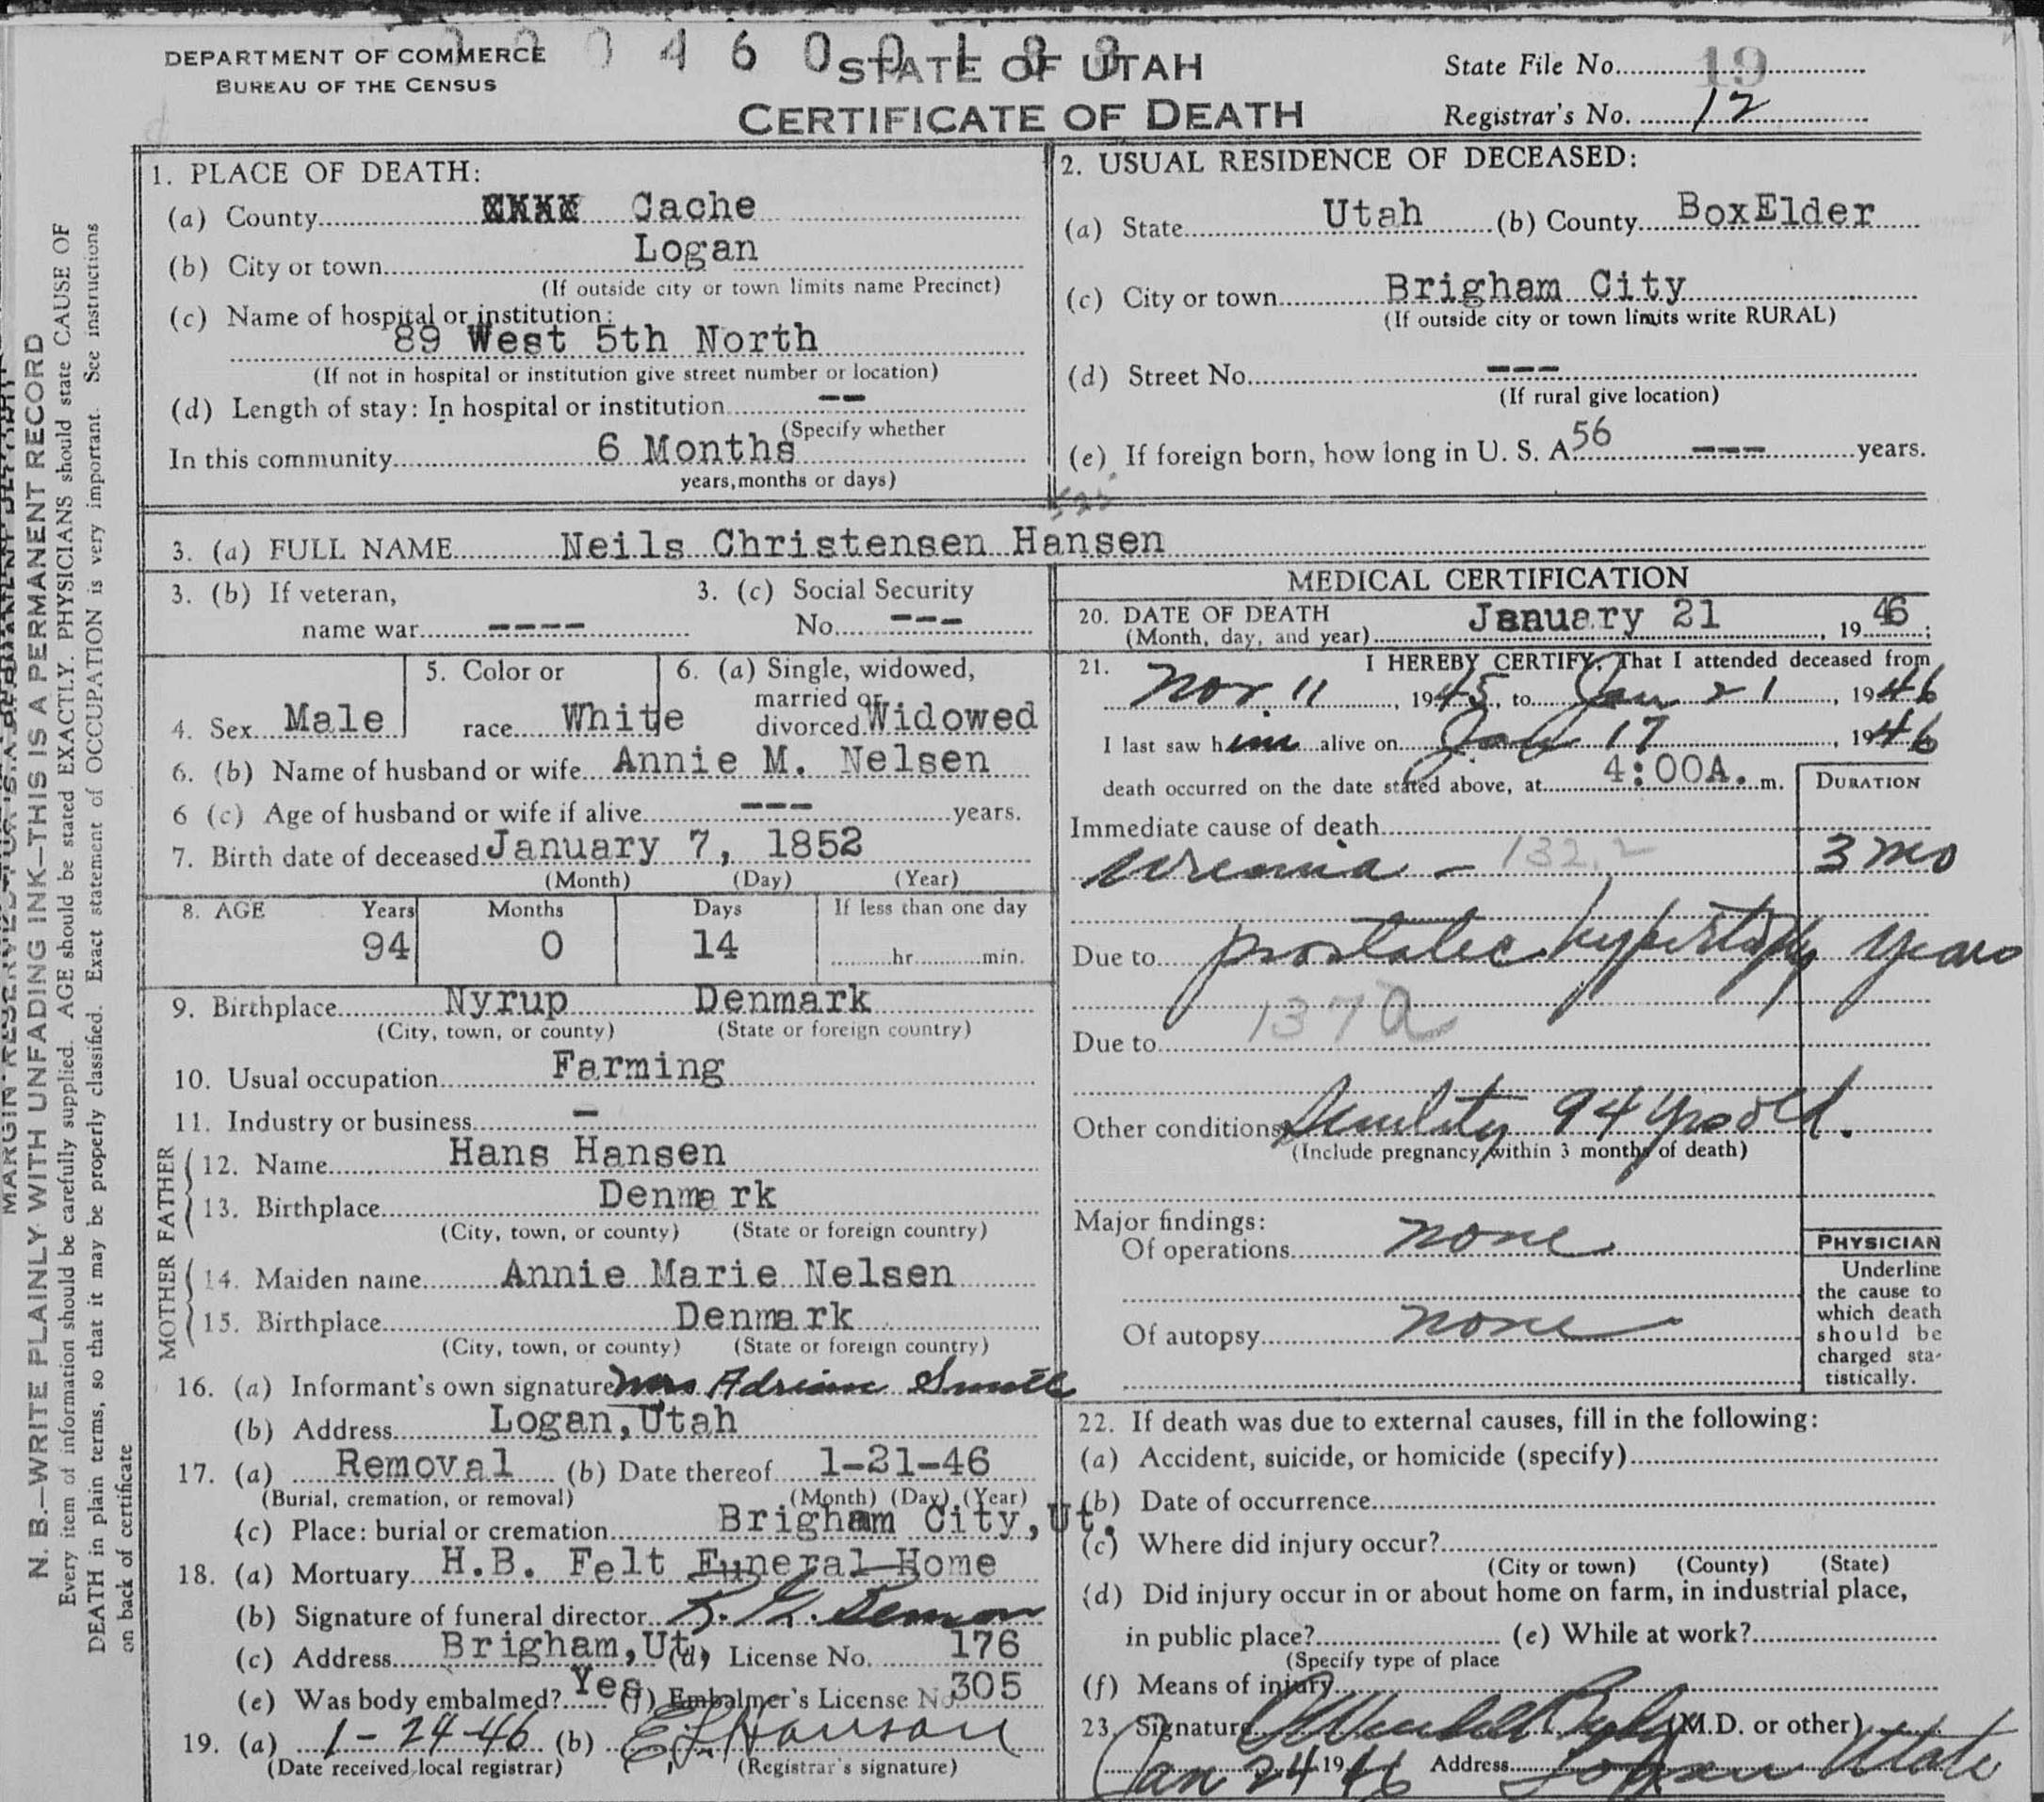 0 0 4 6 0 0 1 8 8
DEPARTMENT OF COMMERCE
BUREAU OF THE CENSUS
STATE OF UTAH
CERTIFICATE OF DEATH
State File No. 19
Registrar's No. 12
MARGIN RESERVED
N. B.—WRITE PLAINLY WITH UNFADING INK—THIS IS A PERMANENT RECORD
Every item of information should be carefully supplied. AGE should be stated EXACTLY. PHYSICIANS should state CAUSE OF
DEATH in plain terms, so that it may be properly classified. Exact statement of OCCUPATION is very important. See instructions
on back of certificate
1. PLACE OF DEATH:
(a) County XXXX Cache
(b) City or town Logan
(If outside city or town limits name Precinct)
(c) Name of hospital or institution:
89 West 5th North
(If not in hospital or institution give street number or location)
(d) Length of stay: In hospital or institution --
(Specify whether
In this community 6 Months
years, months or days)
2. USUAL RESIDENCE OF DECEASED:
(a) State Utah (b) County BoxElder
(c) City or town Brigham City
(If outside city or town limits write RURAL)
(d) Street No. ---
(If rural give location)
(e) If foreign born, how long in U. S. A. 56 --- years.
525
3. (a) FULL NAME Neils Christensen Hansen
3. (b) If veteran,
name war ----
3. (c) Social Security
No. ---
4. Sex Male
5. Color or
race White
6. (a) Single, widowed,
married or
divorced Widowed
6. (b) Name of husband or wife Annie M. Nelsen
6 (c) Age of husband or wife if alive --- years.
7. Birth date of deceased January 7, 1852
(Month) (Day) (Year)
8. AGE Years Months Days If less than one day
94 0 14 hr. min.
9. Birthplace Nyrup Denmark
(City, town, or county) (State or foreign country)
10. Usual occupation Farming
11. Industry or business -
FATHER
12. Name Hans Hansen
13. Birthplace Denmark
(City, town, or county) (State or foreign country)
MOTHER
14. Maiden name Annie Marie Nelsen
15. Birthplace Denmark
(City, town, or county) (State or foreign country)
16. (a) Informant's own signature Mrs Adrian Smith
(b) Address Logan, Utah
17. (a) Removal (b) Date thereof 1-21-46
(Burial, cremation, or removal) (Month) (Day) (Year)
(c) Place: burial or cremation Brigham City, Ut.
18. (a) Mortuary H.B. Felt Funeral Home
(b) Signature of funeral director
(c) Address Brigham, Ut. (d) License No. 176
(e) Was body embalmed? Yes (f) Embalmer's License No. 305
19. (a) 1-24-46 (b)
(Date received local registrar) (Registrar's signature)
MEDICAL CERTIFICATION
20. DATE OF DEATH
(Month, day, and year) January 21, 1946;
21. I HEREBY CERTIFY, That I attended deceased from
Nov. 11, 1945, to Jan 21, 1946
I last saw him alive on Jan 17, 1946
death occurred on the date stated above, at 4:00A. m.
DURATION
Immediate cause of death
Uremia - 132.2 3 mo
Due to prostatic hypertrophy years
137a
Due to
Other conditions Senility 94 yrs old.
(Include pregnancy within 3 months of death)
Major findings:
Of operations none
Of autopsy none
PHYSICIAN
Underline
the cause to
which death
should be
charged sta-
tistically.
22. If death was due to external causes, fill in the following:
(a) Accident, suicide, or homicide (specify)
(b) Date of occurrence
(c) Where did injury occur?
(City or town) (County) (State)
(d) Did injury occur in or about home on farm, in industrial place,
in public place? (e) While at work?
(Specify type of place
(f) Means of injury
23. Signature (M.D. or other)
Jan 24 1946 Address Logan Utah